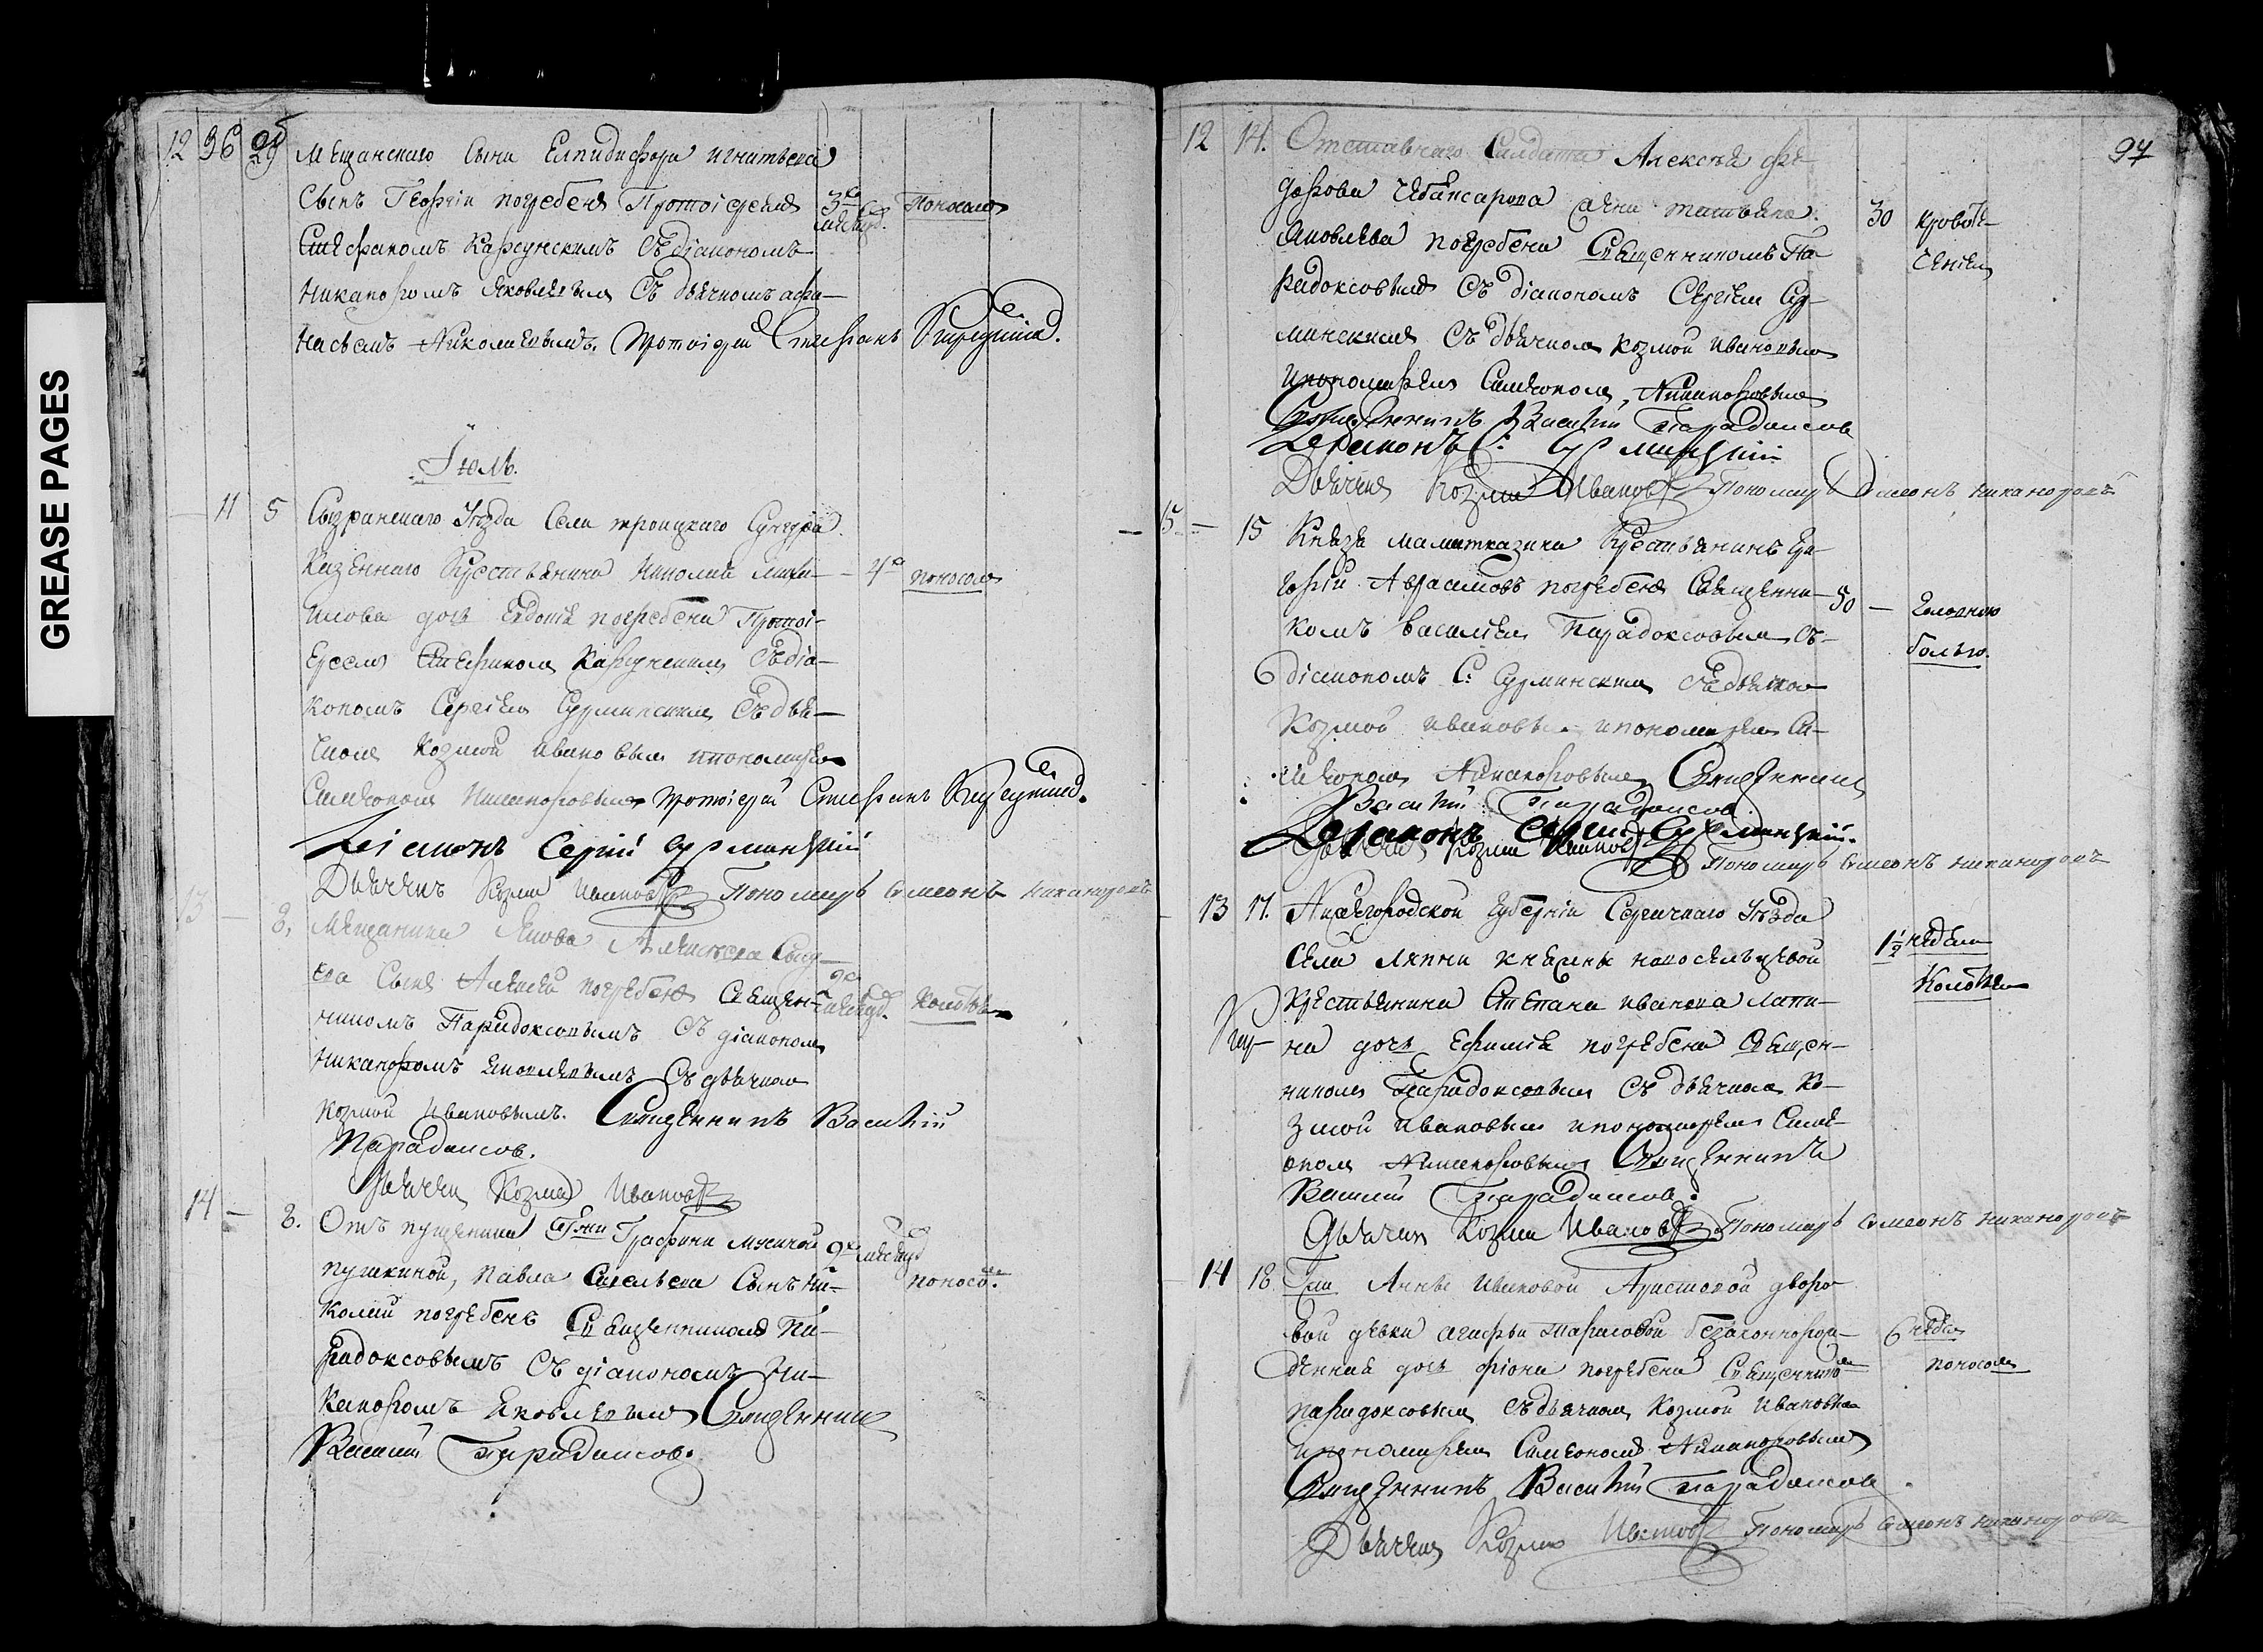 GREASE PAGES
12 36 29 Мещанскаго сына Елпидифора Игнатьева
сынъ Георгiи погребенъ Протоiереемъ 3х месяц. Поносомъ
Стефаномъ Карсунскимъ съ дiакономъ
Никаноромъ Яковлевымъ съ дьячкомъ Афа–
насьемъ Николаевымъ. Протоiерей Стефанъ Карсунскiй.
Iюль.
11 5 Сызранскаго уезда села троицкаго Сунгура
казеннаго крестьянина Николая Миха– 4х поносомъ
илова дочь Евдокiя погребена Протоi–
ереемъ Стефаномъ Карсунскимъ съ дiа–
кономъ Сергiемъ Сурминскимъ съ дья–
чкомъ Козмой Ивановымъ и пономаремъ
Симеономъ Никаноровымъ Протоiерей Стефанъ Карсунскiй.
Дiаконъ Сергiй Сурминскiй
Дьячекъ Козма Ивановъ Пономарь Симеонъ Никаноровъ
13 8. Мещанина Якова Алексеева
сынъ Алексей погребенъ Священ– 9 месяц. Колотьемъ
никомъ Парадоксовымъ съ дiакономъ
Никаноромъ Яковлевымъ съ дьячкомъ
Козмой Ивановымъ. Священникъ Василiй
Парадоксов.
Дьячекъ Козма Ивановъ
14 – 8. Отъ пущеника Г:жи Графини Мусиной 9 месяц.
пушкиной, Павла Савельева сынъ Ни– поносо:
колай погребенъ Священникомъ Па–
радоксовымъ съ дiакономъ Ни–
каноромъ Яковлевымъ Священникъ
Василiй Парадоксов.
97
12 14. Отставнаго Солдата Алексея Фе–
дорова Чебаксарова жена татьяна 30 кровоте–
Яковлева погребена Священникомъ Па– ченiемъ
радоксовымъ съ дiакономъ Сергiемъ Сур–
минскимъ съ дьячкомъ Козмой Ивановымъ
и пономаремъ Симеономъ Никаноровымъ
Священникъ Василiй Парадоксов
Дiаконъ С: Сурминскiй
Дьячекъ Козма Ивановъ Пономарь Симеонъ Никаноровъ
15 – 15 Князя маматказина крестьянинъ Гри–
горiй Аврамовъ погребенъ Священни– 50 – Головною
комъ Василiемъ Парадоксовымъ съ– болью.
дiакономъ С: Сурминскимъ съ дьячкомъ
Козмой Ивановымъ и пономаремъ Си–
меономъ Никаноровымъ Священникъ
Василiй Парадоксов
Дiаконъ Сергiй Сурминскiй.
Дьячекъ Козма Ивановъ Пономарь Симеонъ Никаноровъ
13 17. Нижегородской Губернiи Сергачкаго уезда
села княжны новосельцевой 1 1/2 недели
крестьянина Степана Иванова Лапи– Колотьемъ
на дочь Ефимiя погребена Священ–
никомъ Парадоксовымъ съ дьячкомъ Ко–
змой Ивановымъ и пономаремъ Симе–
ономъ Никаноровымъ Священникъ
Василiй Парадоксов.
Дьячекъ Козма Ивановъ Пономарь Симеонъ Никаноровъ
14 18. Г:жи Анны Ивановой Аристовой дворо–
вой девки Агафьи Тарасовой безаконнорож– 6 недел
денная дочь Фiона погребена Священникомъ поносомъ
парадоксовымъ съ дьячкомъ Козмой Ивановымъ
и пономаремъ Симеономъ Никаноровымъ
Священникъ Василiй Парадоксов
Дьячекъ Козма Ивановъ Пономарь Симеонъ Никаноровъ